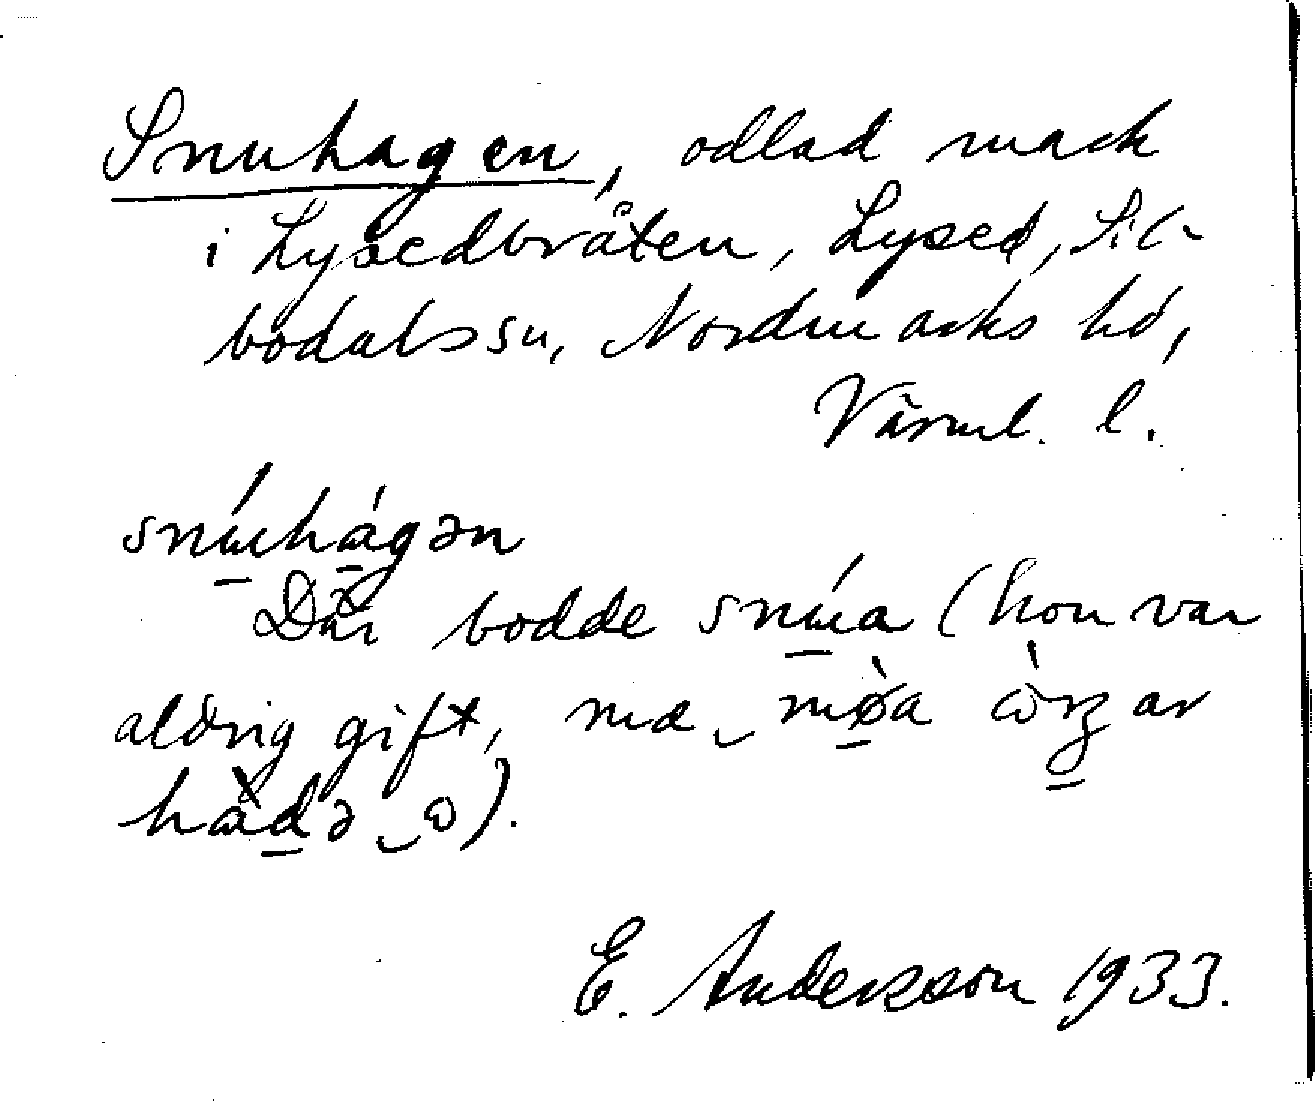 Snuhagen, odlad mark
i Lysedbråten, Lysed, Sil-
bodals sn, Nordmarks hd,
Värml. l.
snúuhágən
Där bodde snúua (hon var
aldrig gift, mæ‿mø̀a
hàdə‿ɷ).
E. Andersson 1933.